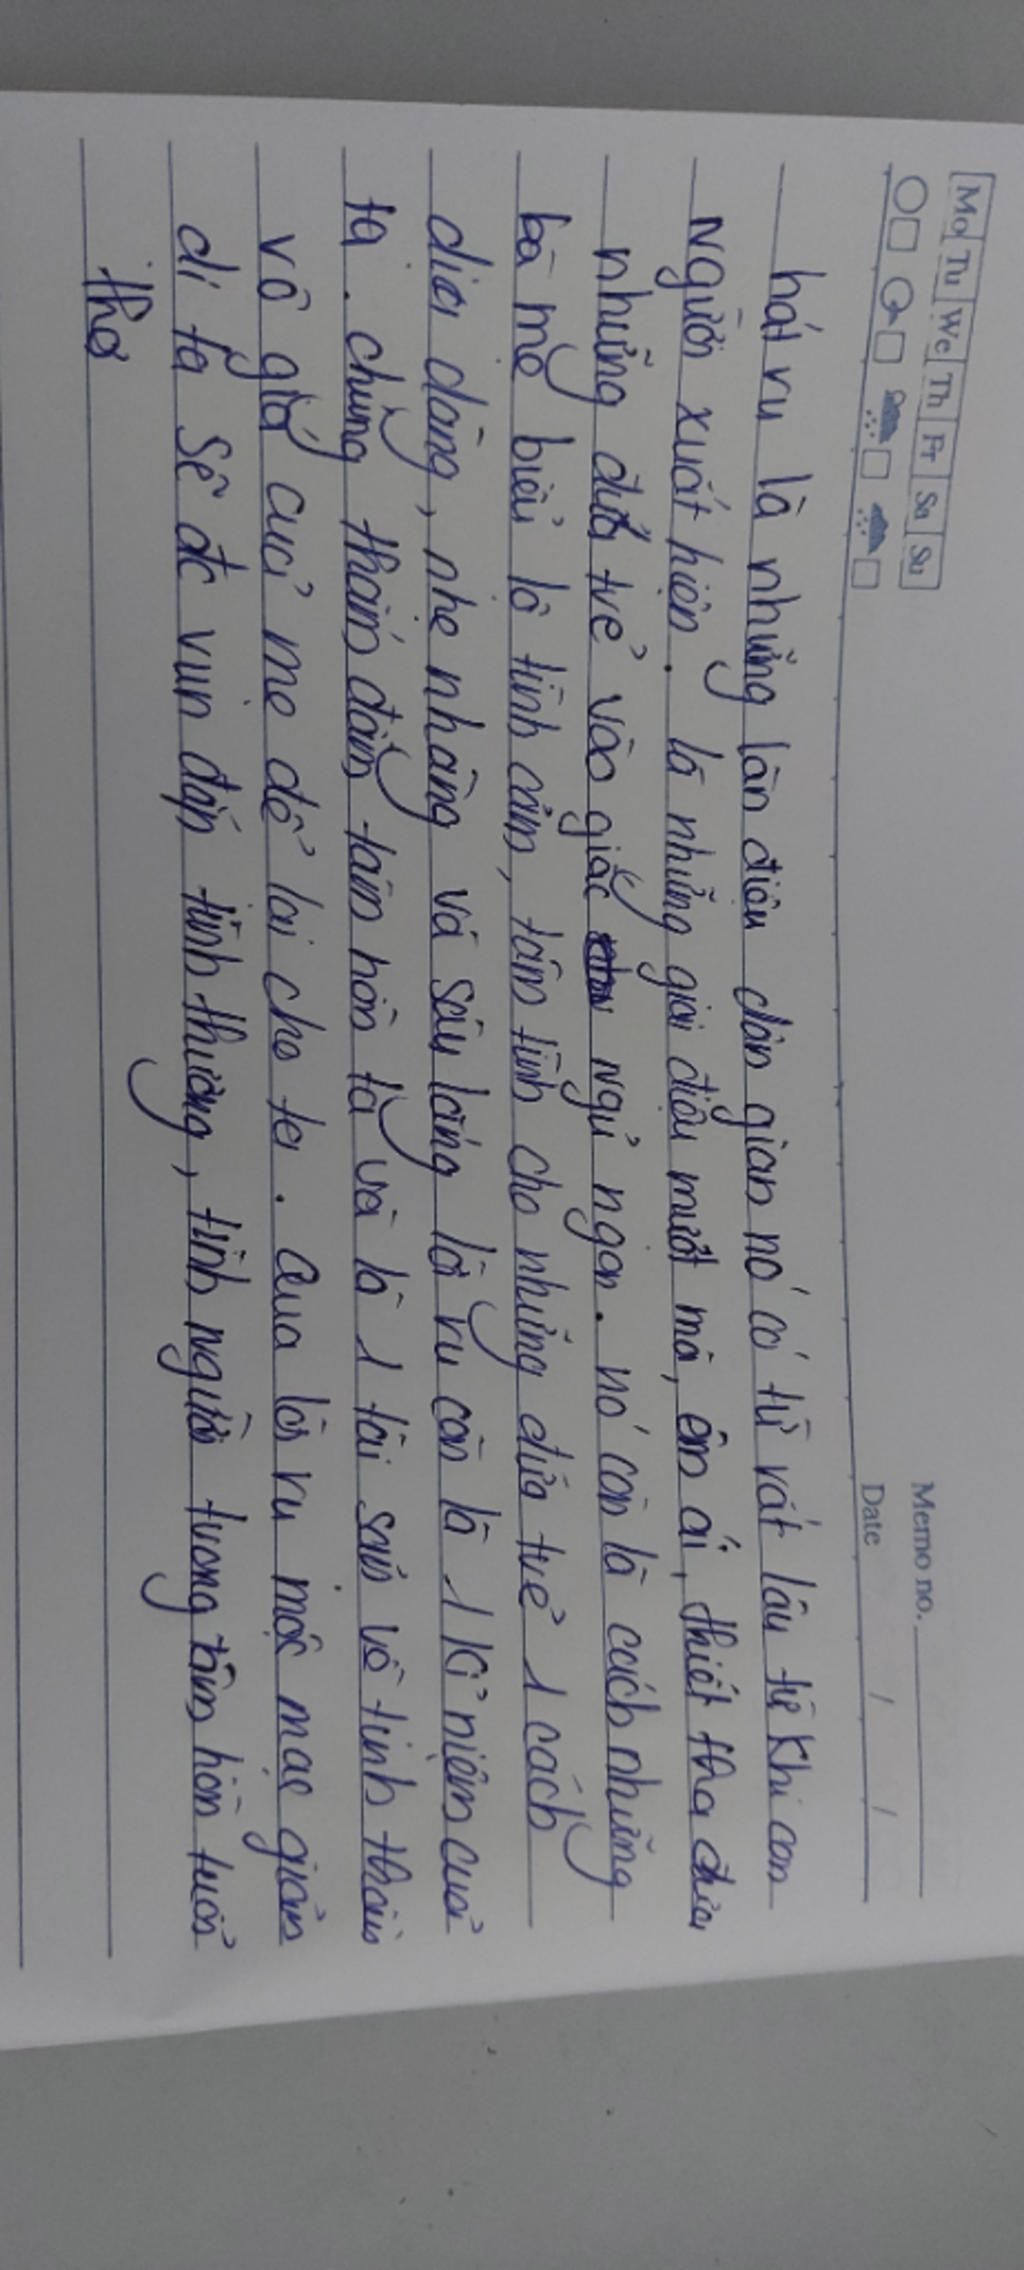 Mo Tu We Th Fr Sa Su
Memo no.
Date / /
hát ru là những làn điệu dân gian nó có từ rất lâu từ khi con
người xuất hiện. là những giai điệu mượt mà, êm ái, thiết tha đưa
những đứa trẻ vào giấc ngủ ngon. nó còn là cách những
bà mẹ biểu lộ tình cảm, tâm tình cho những đứa trẻ 1 cách
dịu dàng, nhẹ nhàng và sâu lắng lời ru còn là 1 kỉ niệm cuả
ta. chúng thấm đẫm tâm hồn ta và là 1 tài sản vô tinh thần
vô giá cuả mẹ để lại cho ta. Qua lời ru mộc mạc giản
dị ta sẽ đc vun đắp tình thương, tình người trong tâm hồn tuổi
thơ